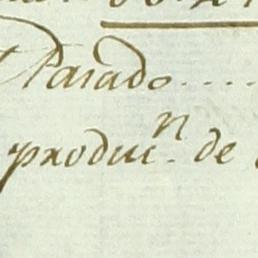 Parado....
produc.n de